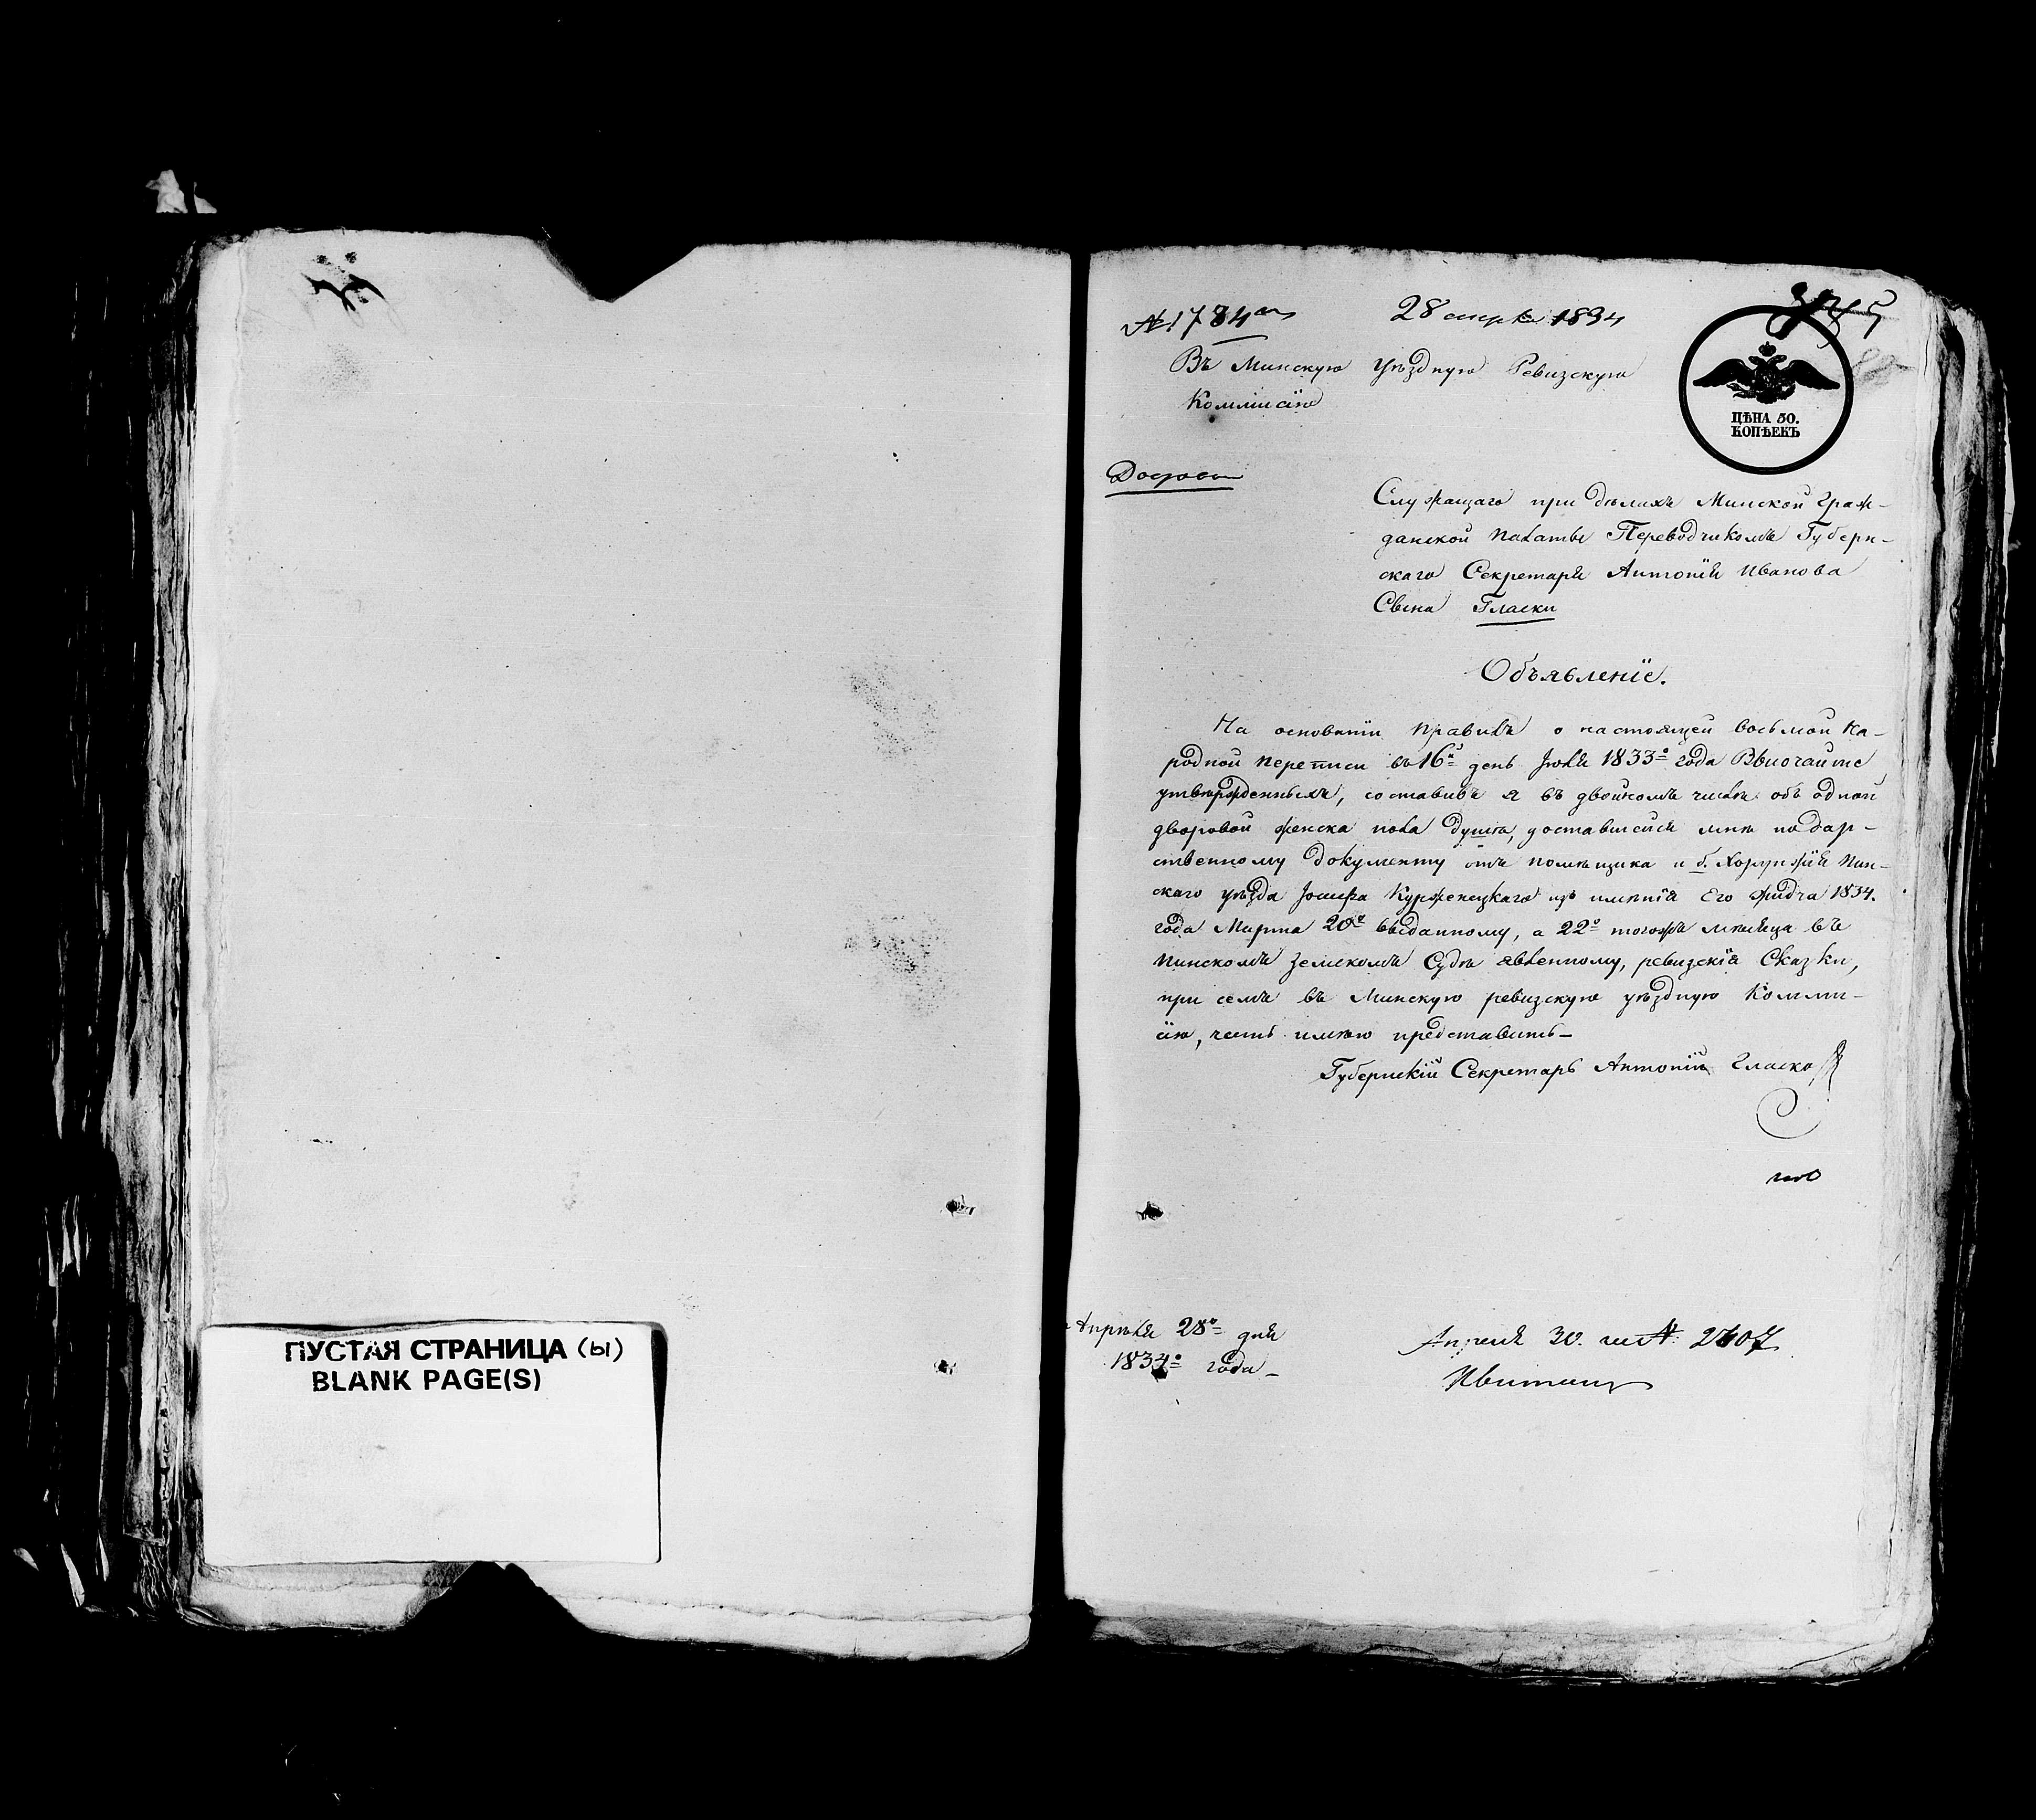 ПУСТАЯ СТРАНИЦА (ы)
BLANK PAGE(S)
№ 1784
28 апреля 1834
Въ Минскую Уѣздную Ревизскую
Коммисію
ЦѢНА 50.
КОПѢЕКЪ
Служащаго при дѣлахъ Минской Граж-
данской Палаты Переводчикомъ Губерн-
скаго Секретаря Антонія Иванова
Сына Гласки
Объявленіе.
На основаніи правилъ о настоящей восьмой на-
родной переписи въ 16й день Іюня 1833го года Высочайше
утвержденныхъ, составивъ я въ двойномъ числѣ объ одной
дворовой женска пола душѣ, доставшейся мнѣ по дар-
ственному документу отъ помѣщика и б. Хорунжія Пин-
скаго уѣзда Іосифа Курженецкаго изъ имѣнія Его Жидча 1834.
года Марта 20го выданному, а 22го тогожъ мѣсяца въ
Пинскомъ Земскомъ Судѣ явленному, ревизскія Сказки,
при семъ въ Минскую ревизскую уѣздную Комми-
сію, честь имѣю представить—
Губернскій Секретарь Антоній Гласко
Апрѣля 28го дня
1834го года —
Апреля 30. № 2607